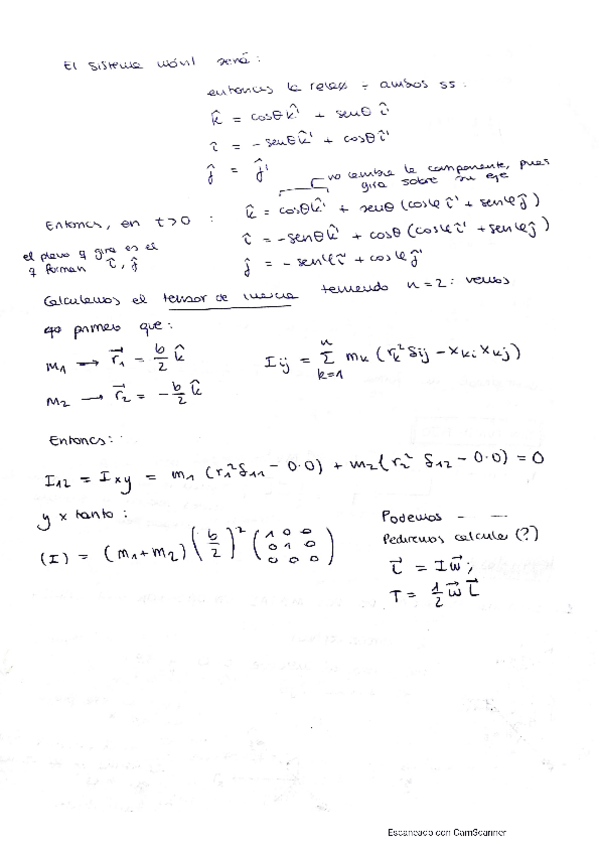 El sistema móvil será:
entonces la relac ÷ ambos ss:
k̂ = cosθ k̂' + senθ î'
î = -senθ k̂' + cosθ î'
ĵ = ĵ'
no cambia la componente, pues
gira sobre su eje
Entonces, en t>0 : k̂ = cosθ k̂' + senθ (cosφ î' + senφ ĵ)
el plano q gira es el
î = -senθ k̂' + cosθ (cosφ î' + senφ ĵ)
q forman î, ĵ
ĵ = -senφ î' + cosφ ĵ
Calculemos el tensor de inercia teniendo n=2: vemos
primero que:
m₁ → r⃗₁ = b/2 k̂
I ij = Σ_{k=1}^{n} m_k (r_k² δij - x_ki x_kj)
m₂ → r⃗₂ = -b/2 k̂
Entoncs:
I₁₂ = I_xy = m₁ (r₁² δ₁₁ - 0·0) + m₂(r₂² δ₁₂ - 0·0) = 0
y x tanto:
(I) = (m₁+m₂) (b/2)² (1 0 0
0 1 0
0 0 0)
Podemos
Pedirnos calcular (?)
L⃗ = I ω⃗;
T = 1/2 ω⃗ L⃗
Escaneado con CamScanner